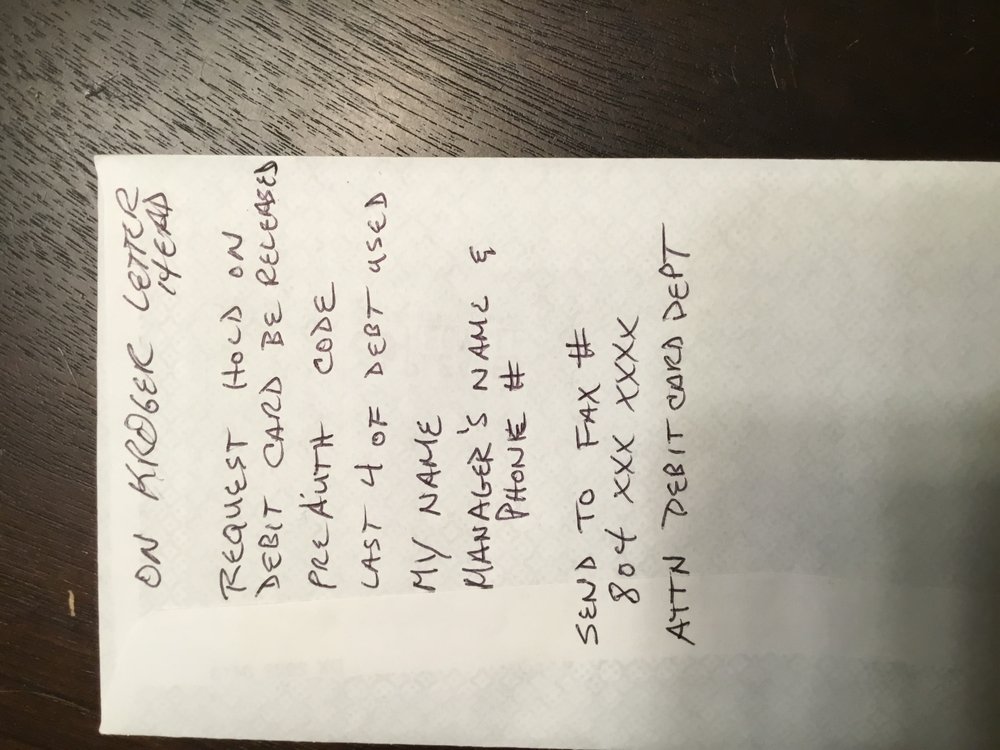 ON KROGER LETTER
HEAD
REQUEST HOLD ON
DEBIT CARD BE RELEASED
PRE AUTH CODE
LAST 4 OF DEBT USED
MY NAME
MANAGER'S NAME &
PHONE #
SEND TO FAX #
804 XXX XXXX
ATTN DEBIT CARD DEPT